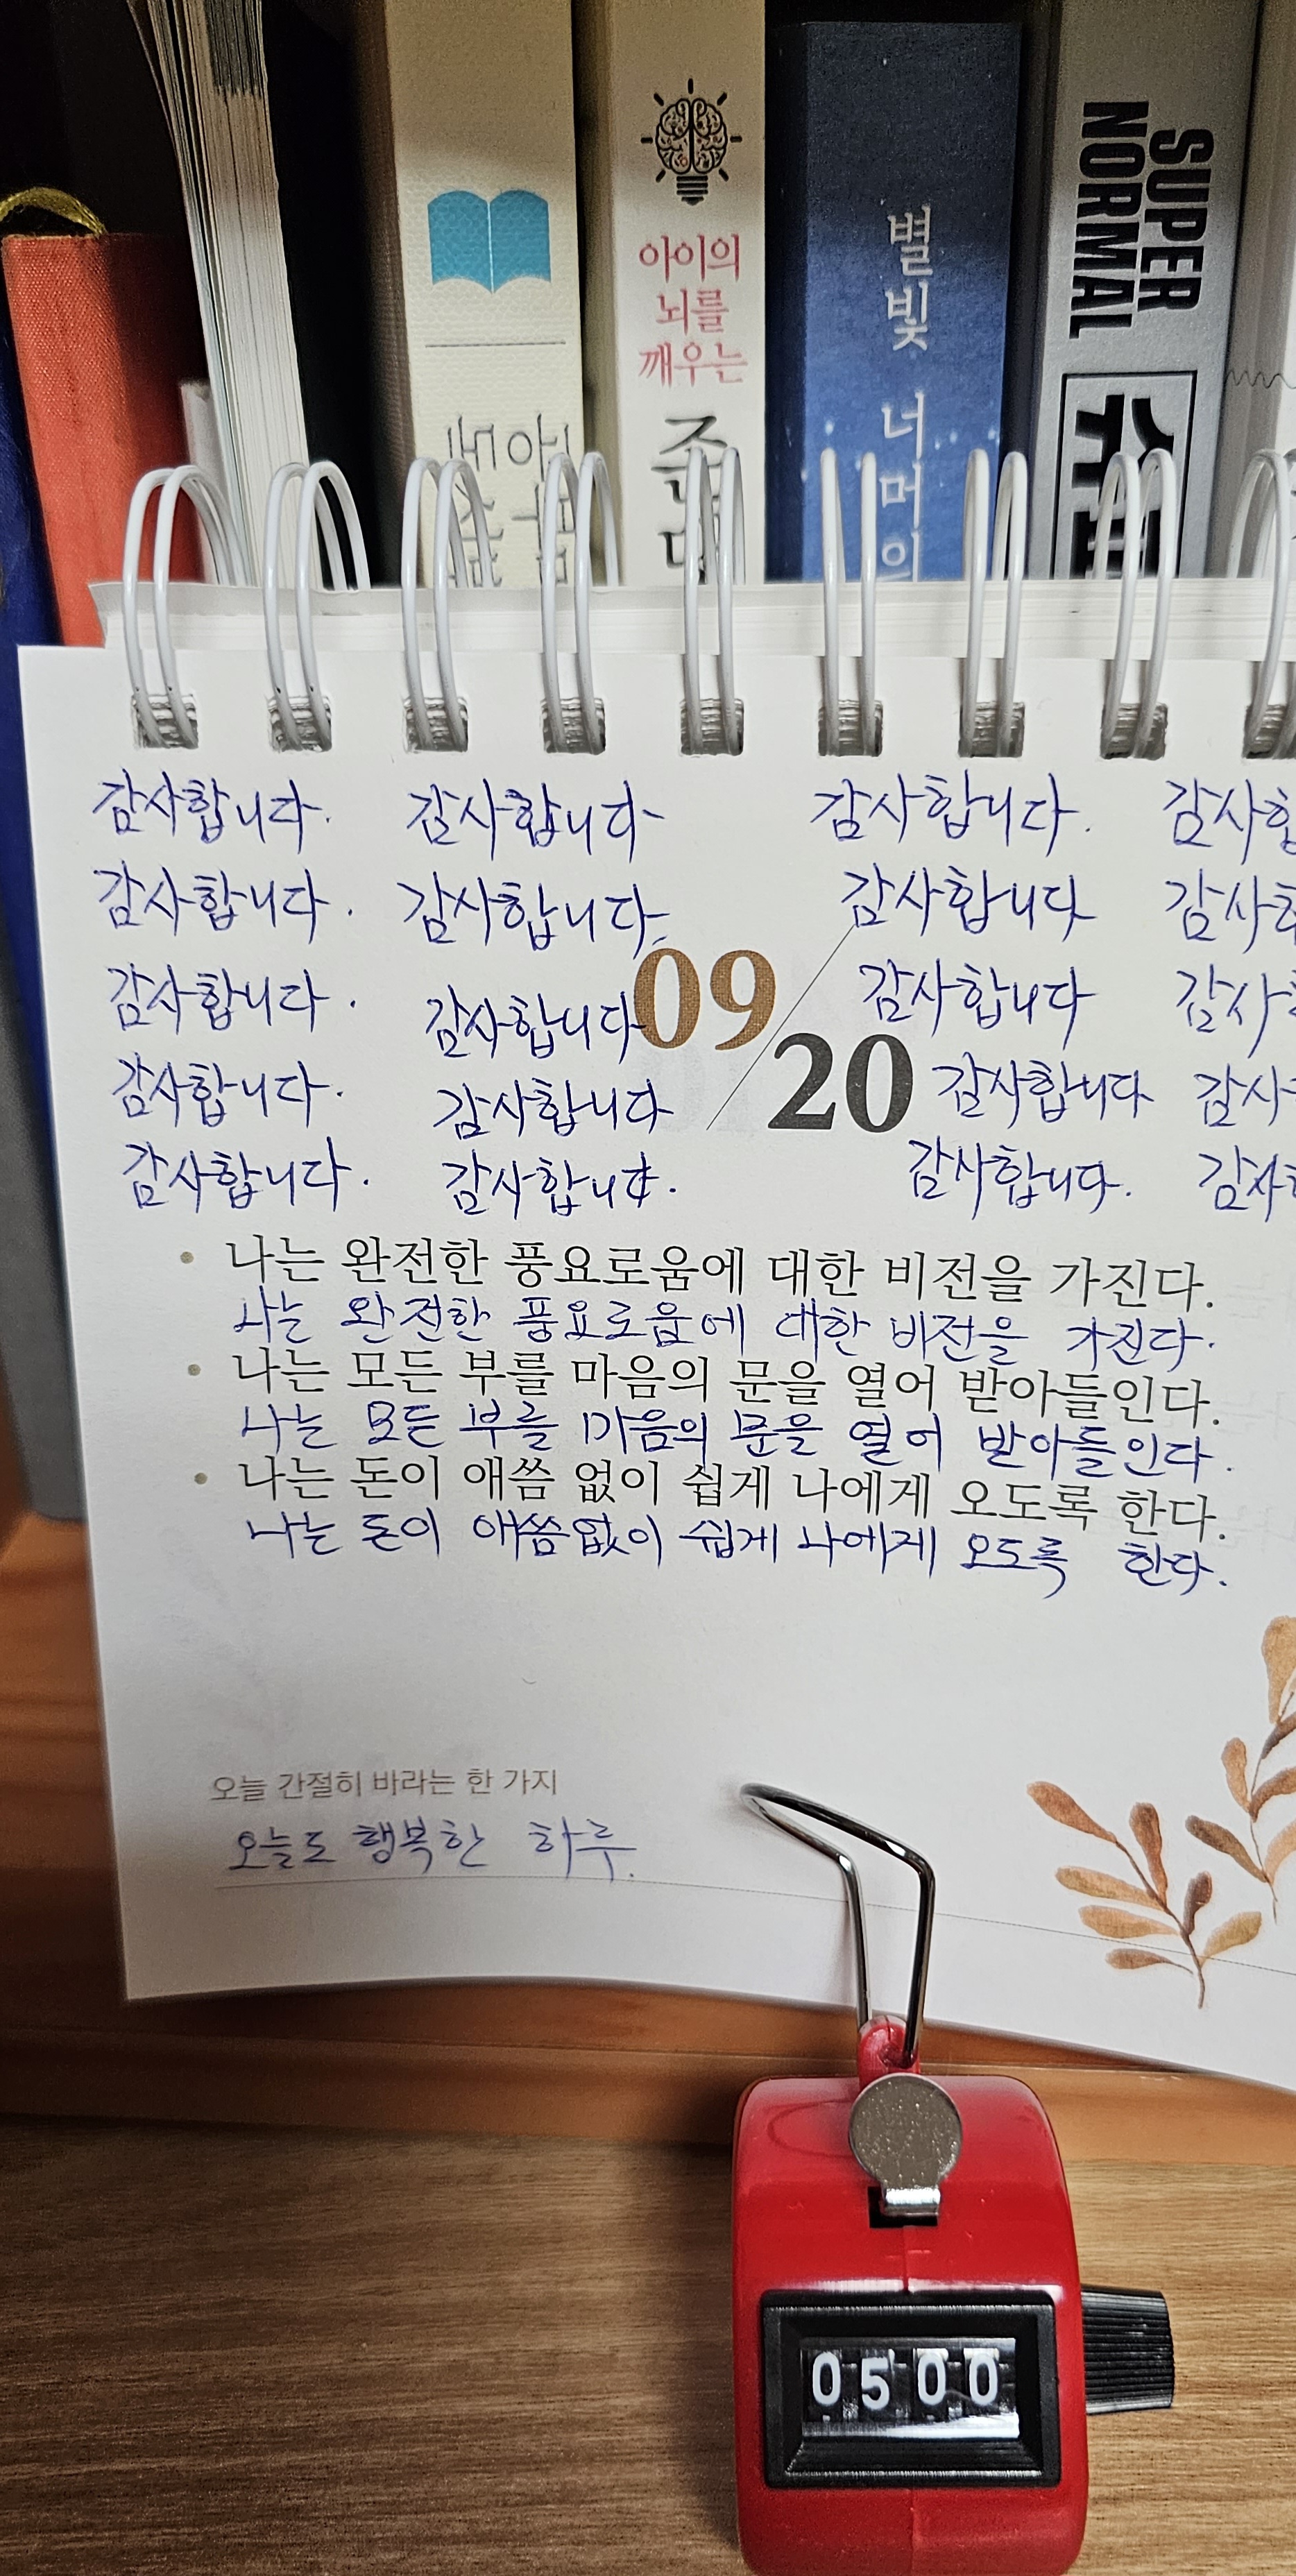 아이의
뇌를
깨우는
별빛 너머의
SUPER
NORMAL
감사합니다. 감사합니다 감사합니다. 감사합
감사합니다. 감사합니다. 감사합니다 감사합
감사합니다. 감사합니다 감사합니다 감사
감사합니다. 감사합니다 감사합니다 감사
감사합니다. 감사합니다. 감사합니다. 감사
09
20
• 나는 완전한 풍요로움에 대한 비전을 가진다.
나는 완전한 풍요로움에 대한 비전을 가진다.
• 나는 모든 부를 마음의 문을 열어 받아들인다.
나는 모든 부를 마음의 문을 열어 받아들인다.
• 나는 돈이 애씀 없이 쉽게 나에게 오도록 한다.
나는 돈이 애씀 없이 쉽게 나에게 오도록 한다.
오늘 간절히 바라는 한 가지
오늘도 행복한 하루.
0500